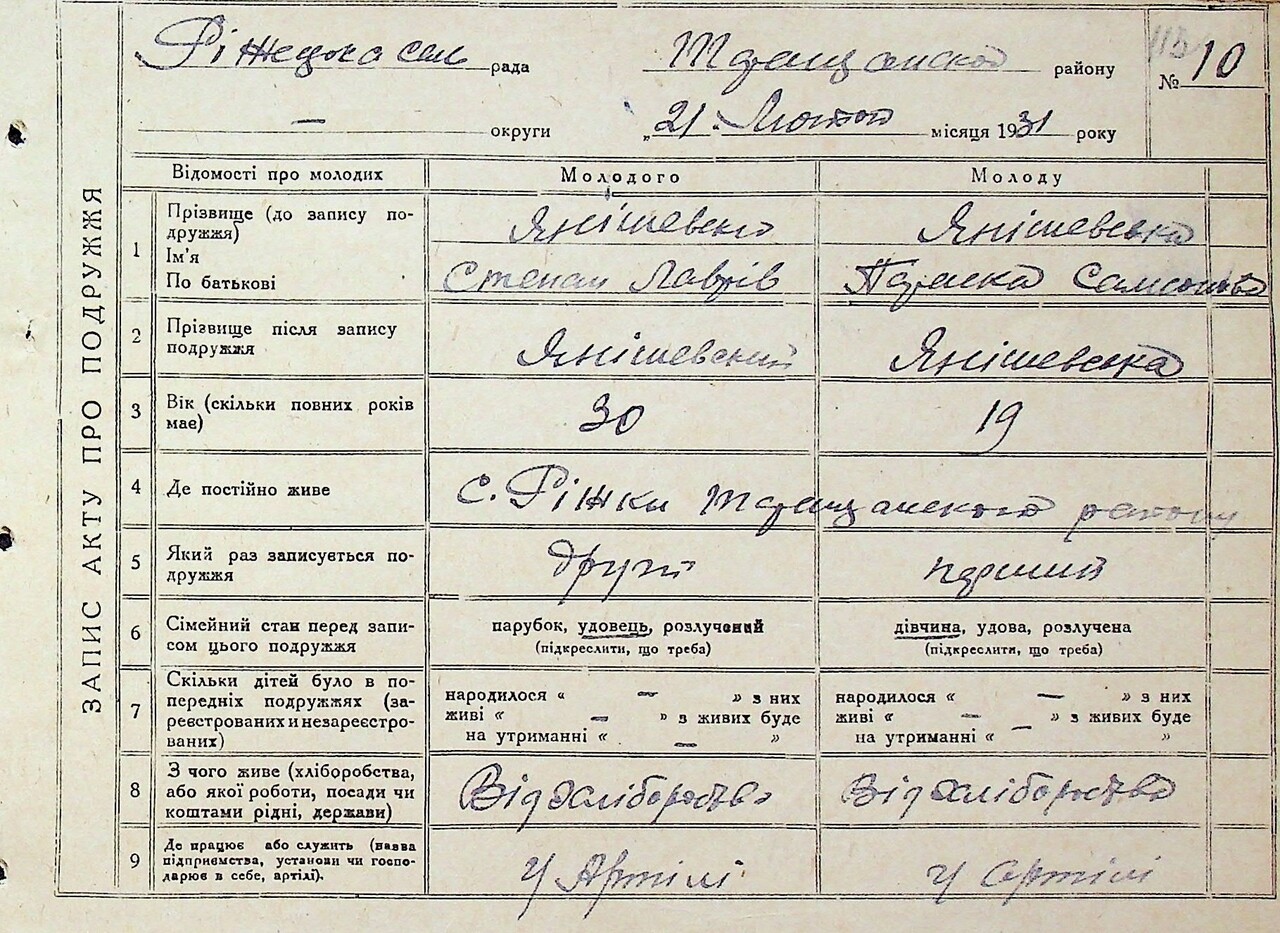 Ріжецька сель рада Таращанского району
№ 10
— округи „21" Лютого місяця 1931 року
ЗАПИС АКТУ ПРО ПОДРУЖЖЯ
Відомості про молодих Молодого Молоду
1 Прізвище (до запису по-
дружжя) Янішевский Янішевська
Ім'я
По батькові Степан Лаврів Параска Самсонова
2 Прізвище після запису
подружжя Янішевский Янішевська
3 Вік (скільки повних років
має) 30 19
4 Де постійно живе с. Ріжки Таращанского району
5 Який раз записується по-
дружжя другий перший
6 Сімейний стан перед запи-
сом цього подружжя парубок, удовець, розлучений дівчина, удова, розлучена
(підкреслити, що треба) (підкреслити, що треба)
7 Скільки дітей було в по-
передніх подружжях (за-
реєстрованих и незареєстро-
ваних)
народилося « — » з них народилося « — » з них
живі « — » з живих буде живі « — » з живих буде
на утриманні « — » на утриманні « — »
8 З чого живе (хліборобства,
або якої роботи, посади чи
коштами рідні, держави) Від хліборобства Від хліборобства
9 Де працює або служить (назва
підприємства, установи чи госпо-
дарює в себе, артілі). У Артілі У артілі